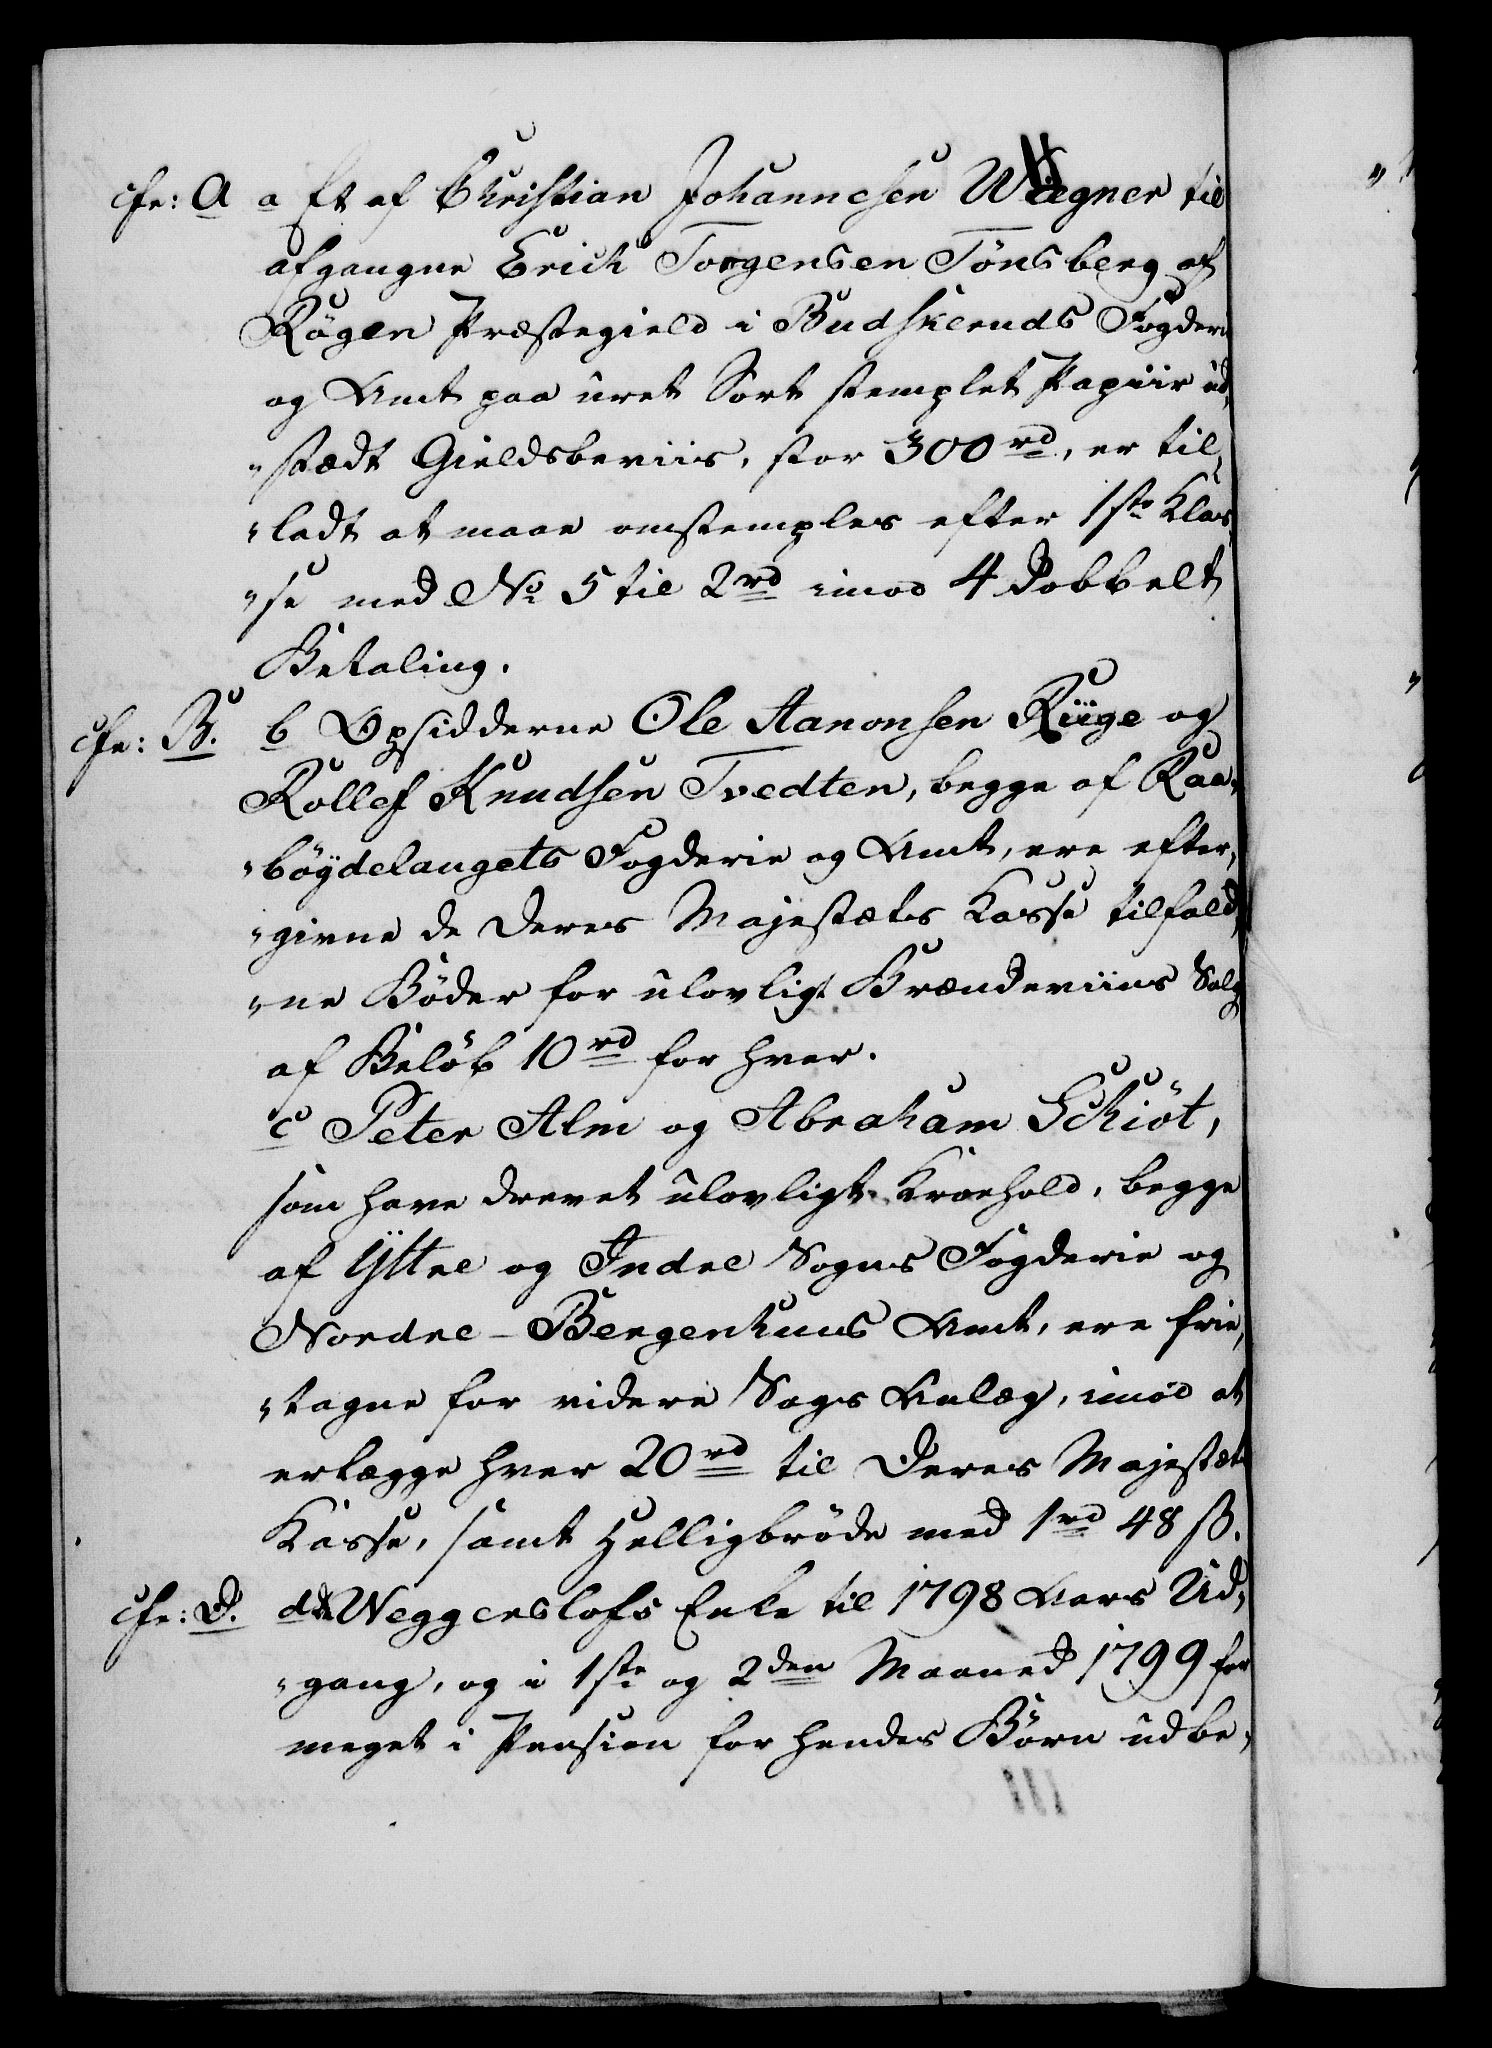 cfr: A a Et af Christian Johannesen Wægner til
afgangne Erich Torgensen Tönsberg af
Rögen Præstegield i Budskeruds Fogderi
og Amt paa uret Sort stemplet Papiir ud,
"stædt Gieldsbeviis, stor 300 rd, er til,
"ladt at maae omstemples efter 1ste Klas,
"se med No 5 til 2 rd imod 4 Dobbelt
Betaling.
cfr: B. b Opsidderne Ole Aanonsen Riige og
Rollef Knudsen Tvedten, begge af Raa,
"böÿdelaugets Fogderie og Amt, ere efter,
"givne de Deres Majestæts Kasse tilfald,
"ne Böder for ulovligt Brændeviins Salg
af Belöb 10 rd for hver.
c Peter Alm og Abraham Schiöt,
som have drevet ulovligt Kroehold, begge
af Ÿttre og Indre Sogns Fogderie og
Nordre-Bergenhuus Amt, ere frie,
"tagne for videre Sags Anlæg, imod at
erlægge hver 20 rd til Deres Majestæts
Kasse, samt Helligbröde med 1 rd 48 ß.
cfr: D. d Weggerslofs Enke til 1798 Aars Ud,
"gang, og i 1ste og 2den Maaned 1799 for
meget i Pension for hendes Börn udbe,